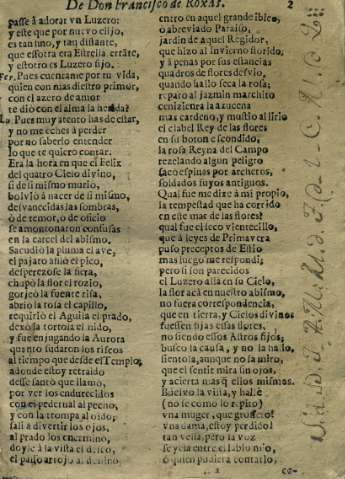 De Don Francisco de Roxas. 2
passè à adorar vn Luzero:
y este que por nuevo elijo,
es tan vno, y tan distante,
que essotra era Estrella errãte,
y essotro es Luzero fijo.
Fer. Pues cuentame por tu vida,
quien con mas diestro primor,
con el azero de amor
te diò con el alma la herida?
Lo. Pues muy atento has de estar,
y no me eches à perder
por no saberlo entender
lo que te quiero contar.
Era la hora en que el Felix
del quarto Cielo divino,
si de si mismo murio,
bolviò à nacer de si mismo,
desvanecidas las sombras,
ò de temor, ò de oficio
se amontonaron confusas
en la carcel del abismo.
Sacudiò la pluma el ave,
el pajaro afiló el pico,
desperezòse la fiera,
chupò la flor el rozio,
gorjeò la fuente risa,
abriò la rosa el capillo,
requiriò el Aguila el prado,
dexò la tortola el nido,
y fue enjugando la Aurora
quanto sudaron los riscos
al tiempo que desde el Templo,
adonde estoy retraido
desse santo que llamò,
por ver los endurecidos
con el pedernal al pecho,
y con la trompa al oido,
salì à divertir los ojos,
al prado los encamino,
doyle à la vista el
el passo arrojo al
entro en aquel grande
o abreviado Paraiso,
jardin de aquel Regidor,
que hizo al Invierno florido,
y à penas por sus estancias
quadros de flores desvio,
quando hallo seca la rosa;
reparo al jazmin marchito
cenizienta la azucena
mas cardeno, y mustio al lirio
el clabel Rey de las flores
en su boton escondido,
la rosa Reyna del Campo
rezelando algun peligro
saco espinas por archeros,
soldados suyos antiguos.
Qual fue me dixe à mi propio,
la tempestad que ha corrido
en este mar de las flores?
qual fue el seco vientecillo,
que à leyes de Primavera
puso preceptos de Estio
mas luego me respondi;
pero si son parecidos
el Luzero allà en su Cielo,
la flor acà en nuestro abismo,
no fuera correspondencia,
que en tierra, y Cielos divinos
fuessen fijas essas flores,
no siendo essos Astros fijos;
busco la causa, y no la hallo,
siento la, aunque no la miro,
que el sentir mira sin ojos,
y acierta mas q̃ ellos mismos.
Buelvo la vista, y hallè
(no sè como lo repito)
vna muger, que grossero!
vna dama, estoy perdido!
tan vella, pero la voz
se yela entre el labio
ò quien pudiera contarlo,